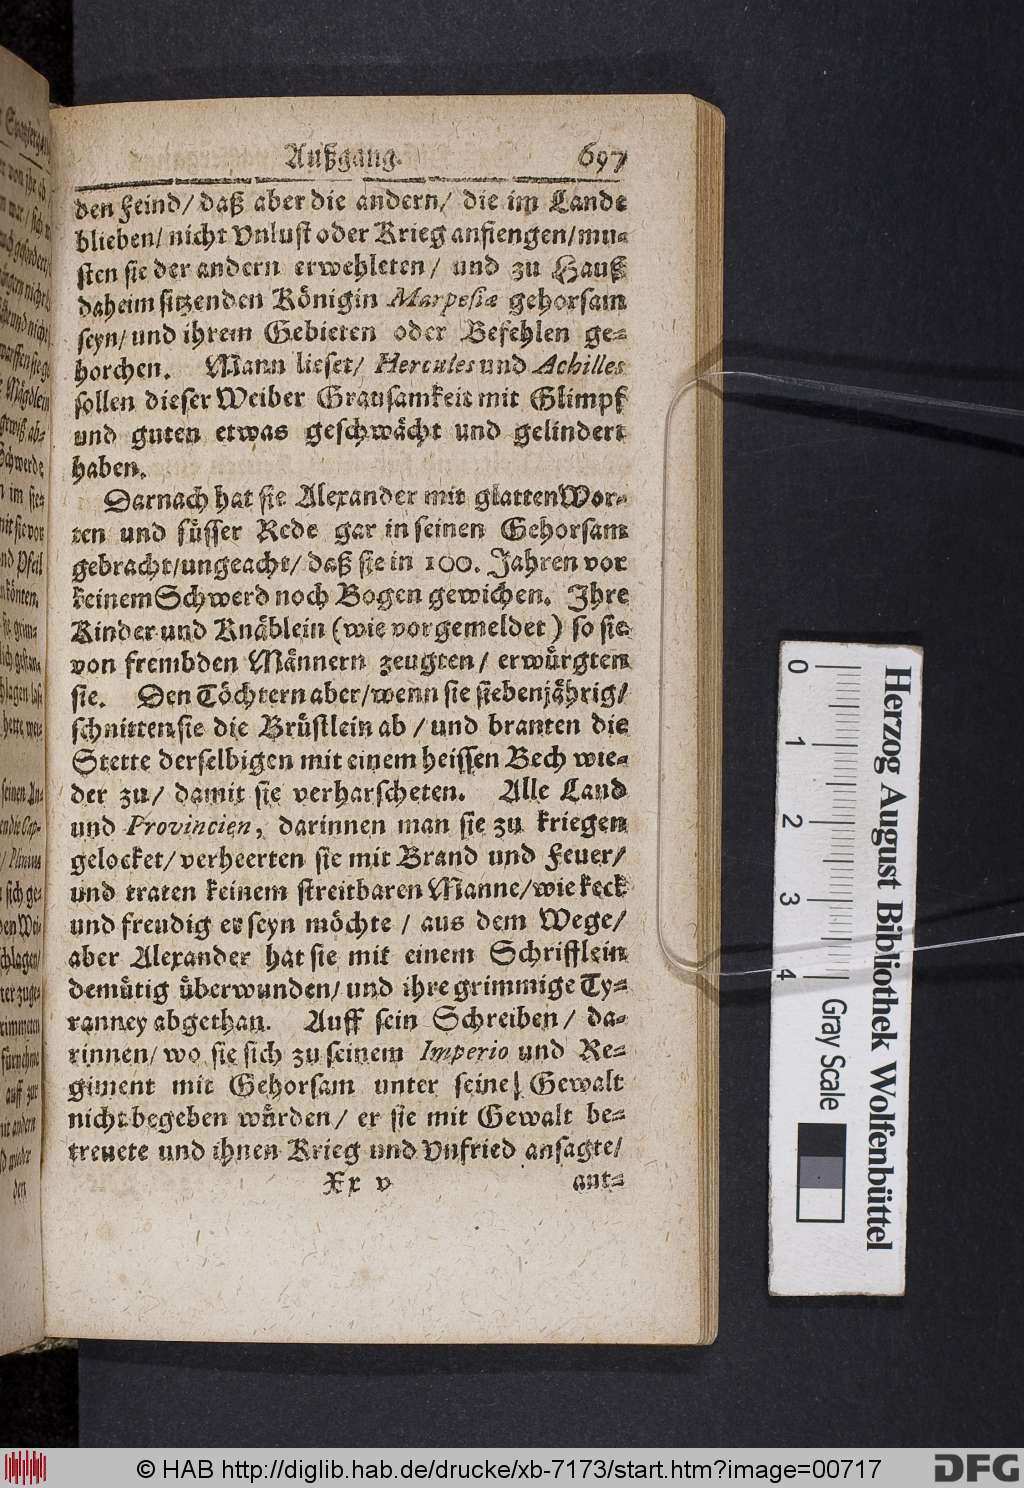 Außgang. 697
den Feind/ daß aber die andern/ die im Lande
blieben/ nicht Vnlust oder Krieg anfiengen/ mu-
sten sie der andern erwehleten/ und zu Hauß
daheim sitzenden Königin Marpesiæ gehorsam
seyn/ und ihrem Gebieten oder Befehlen ge-
horchen. Mann lieset/ Hercules und Achilles
sollen dieser Weiber Grausamkeit mit Glimpf
und guten etwas geschwächt und gelindert
haben.
Darnach hat sie Alexander mit glatten Wor-
ten und süsser Rede gar in seinen Gehorsam
gebracht/ ungeacht/ daß sie in 100. Jahren vor
keinem Schwerd noch Bogen gewichen. Ihre
Kinder und Knäblein (wie vorgemeldet) so sie
von frembden Männern zeugten/ erwürgten
sie. Den Töchtern aber/ wenn sie siebenjährig/
schnitten sie die Brüstlein ab/ und branten die
Stette derselbigen mit einem heissen Bech wie-
der zu/ damit sie verharscheten. Alle Land
und Provincien, darinnen man sie zu kriegen
gelocket/ verheerten sie mit Brand und Feuer/
und traten keinem streitbaren Manne/ wie keck
und freudig er seyn möchte/ aus dem Wege/
aber Alexander hat sie mit einem Schrifftlein
demütig überwunden/ und ihre grimmige Ty-
ranney abgethan. Auff sein Schreiben/ da-
rinnen/ wo sie sich zu seinem Imperio und Re-
giment mit Gehorsam unter seine Gewalt
nicht begeben würden/ er sie mit Gewalt be-
treuete und ihnen Krieg und Vnfried ansagte/
Xx v ant-
0 1 2 3 4
Herzog August Bibliothek Wolfenbüttel
Gray Scale
© HAB http://diglib.hab.de/drucke/xb-7173/start.htm?image=00717
DFG